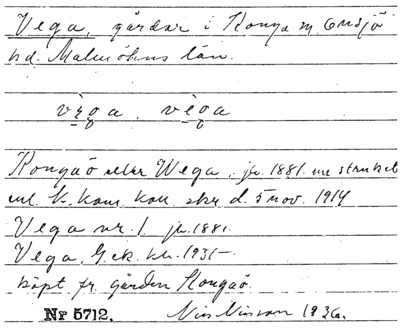 Vega, gårdar i Konga sn, Onsjö
hd. Malmöhus län.
vèga, vèga
Kongaö eller Wega, jb. 1881. me struket
enl. K. kam. koll. skr. d. 5 nov. 1914
Vega nr. 1. jb. 1881.
Vega, Gek. kb. 1931-
köpt fr. gården Kongaö.
Nr 5712. Nils Nilsson 1936.